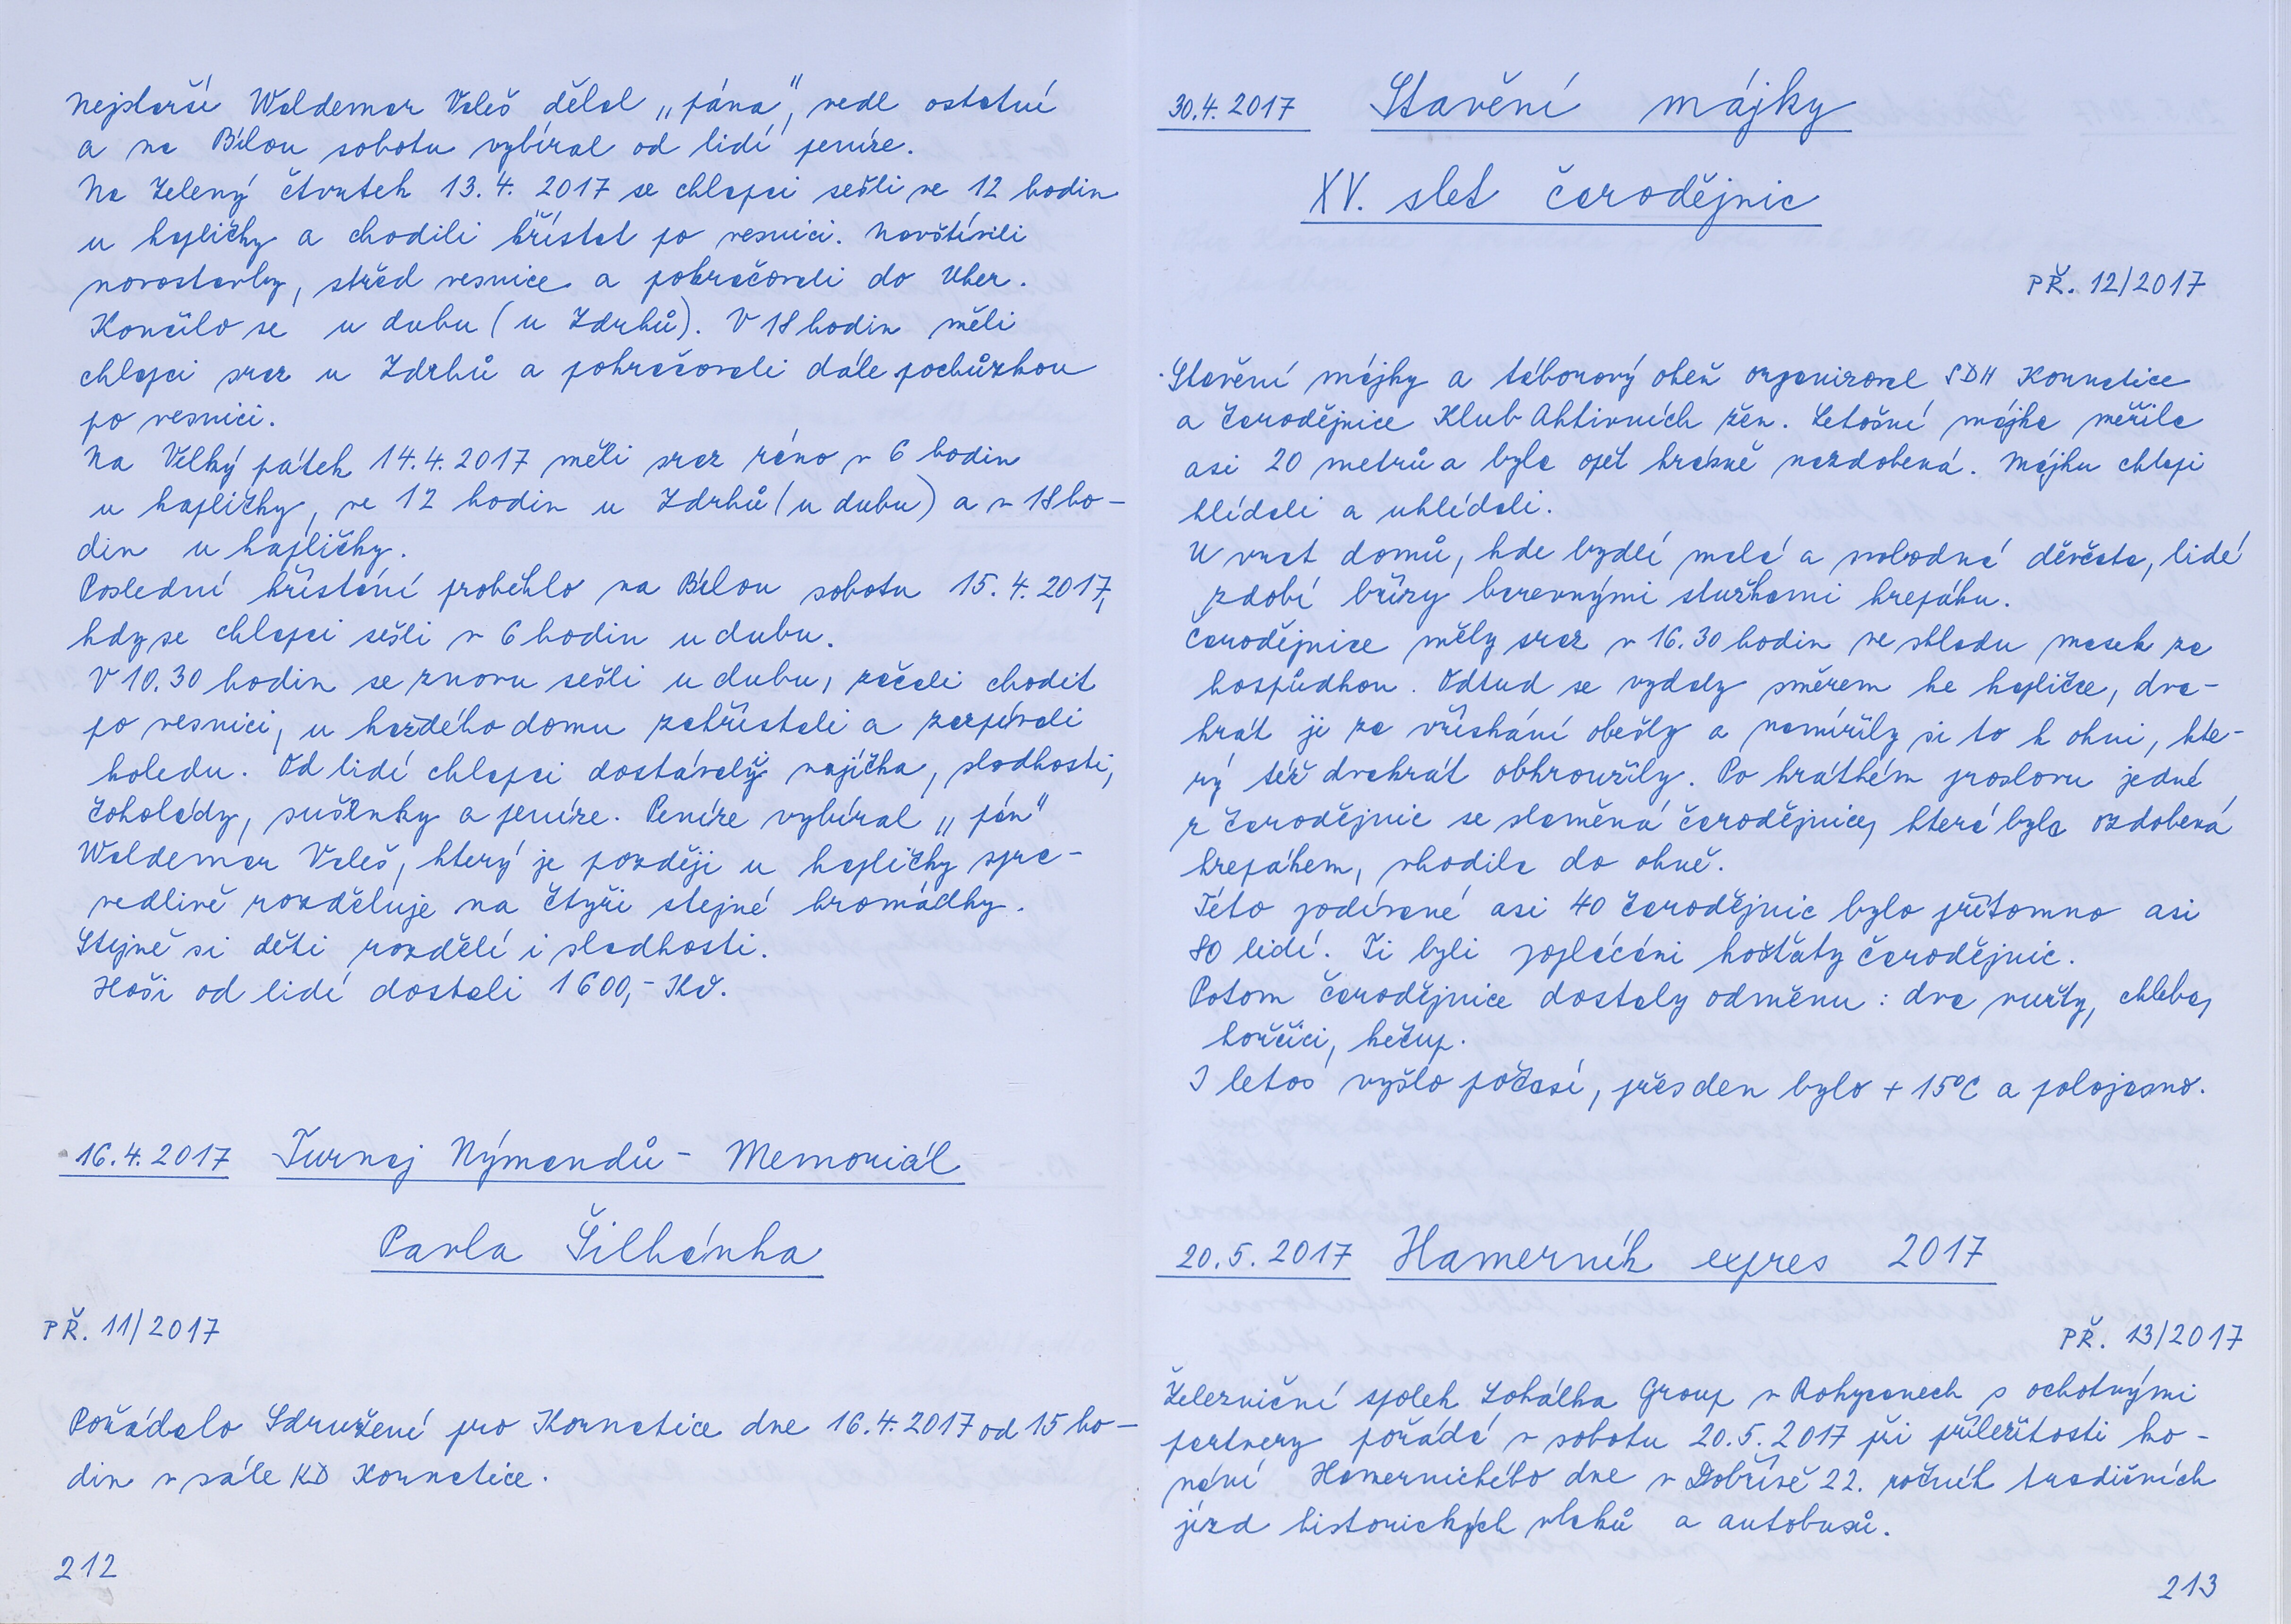 Nejstarší Waldemar Valeš dělal „pána", vedl ostatní
a na Bílou sobotu vybíral od lidí peníze.
Na Zelený čtvrtek 13. 4. 2017 se chlapci sešli ve 12 hodin
u kapličky a chodili břístat po vesnici. Navštívili
novostavby, střed vesnice a pokračovali do Uher.
Končilo se u dubu (u Zdrhů). V 18 hodin měli
chlapci sraz u Zdrhů a pokračovali dále pochůzkou
po vesnici.
Na Velký pátek 14. 4. 2017 měli sraz ráno v 6 hodin
u kapličky, ve 12 hodin u Zdrhů (u dubu) a v 18 ho-
din u kapličky.
Poslední břístání proběhlo na Bílou sobotu 15. 4. 2017,
kdy se chlapci sešli v 6 hodin u dubu.
V 10.30 hodin se znovu sešli u dubu, začali chodit
po vesnici, u každého domu zabřístali a zazpívali
koledu. Od lidí chlapci dostávaly vajíčka, sladkosti,
čokolády, sušenky a peníze. Peníze vybíral „pán"
Waldemar Valeš, který je později u kapličky spra-
vedlivě rozděluje na čtyři stejné hromádky.
Stejně si děti rozdělí i sladkosti.
Hoši od lidí dostali 1 600,- Kč.
16. 4. 2017 Turnaj Nýmandů - Memoriál
Pavla Šilhánka
PŘ. 11/2017
Pořádalo Sdružení pro Kornatice dne 16. 4. 2017 od 15 ho-
din v sále KD Kornatice.
212
30. 4. 2017 Stavění májky
XV. slet čarodějnic
PŘ. 12/2017
Stavění májky a táborový oheň organizoval SDH Kornatice
a čarodějnice Klub Aktivních žen. Letošní májka měřila
asi 20 metrů a byla opět krásně nazdobená. Májku chlapi
hlídali a uhlídali.
U vrat domů, kde bydlí malá a svobodná děvčata, lidé
zdobí břízy barevnými stužkami krepáku.
Čarodějnice měly sraz v 16.30 hodin ve skladu masek za
hospůdkou. Odtud se vydaly směrem ke kapličce, dva-
krát ji za vřískání obešly a namířily si to k ohni, kte-
rý též dvakrát obkroužily. Po krátkém proslovu jedné
z čarodějnic se slaměná čarodějnice, která byla ozdobená
krepákem, vhodila do ohně.
Této podívané asi 40 čarodějnic bylo přítomno asi
80 lidí. Ti byli popláceni košťaty čarodějnic.
Potom čarodějnice dostaly odměnu: dva vuřty, chleba,
hořčici, kečup.
I letos vyšlo počasí, přes den bylo + 15°C a polojasno.
20. 5. 2017 Hamerník expres 2017
PŘ. 13/2017
Železniční spolek Lokálka Group v Rokycanech s ochotnými
partnery pořádá v sobotu 20. 5. 2017 při příležitosti ko-
nání Hamernického dne v Dobřívě 22. ročník tradičních
jízd historických vlaků a autobusů.
213